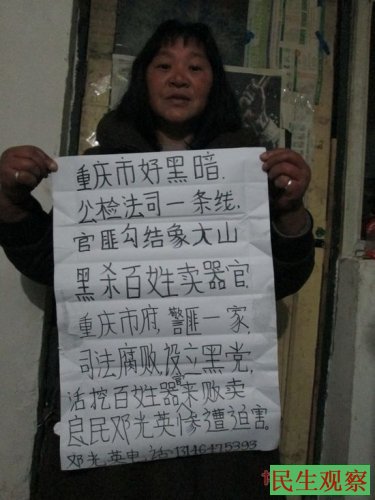 重庆市好黑暗.
公检法司一条线,
官匪勾结象大山
黑杀百姓卖器官,
重庆市府,警匪一家,
司法腐败设立黑党,
活挖百姓器官来贩卖
良民邓光英惨遭迫害.
邓光英电话:13146475393
民生观察